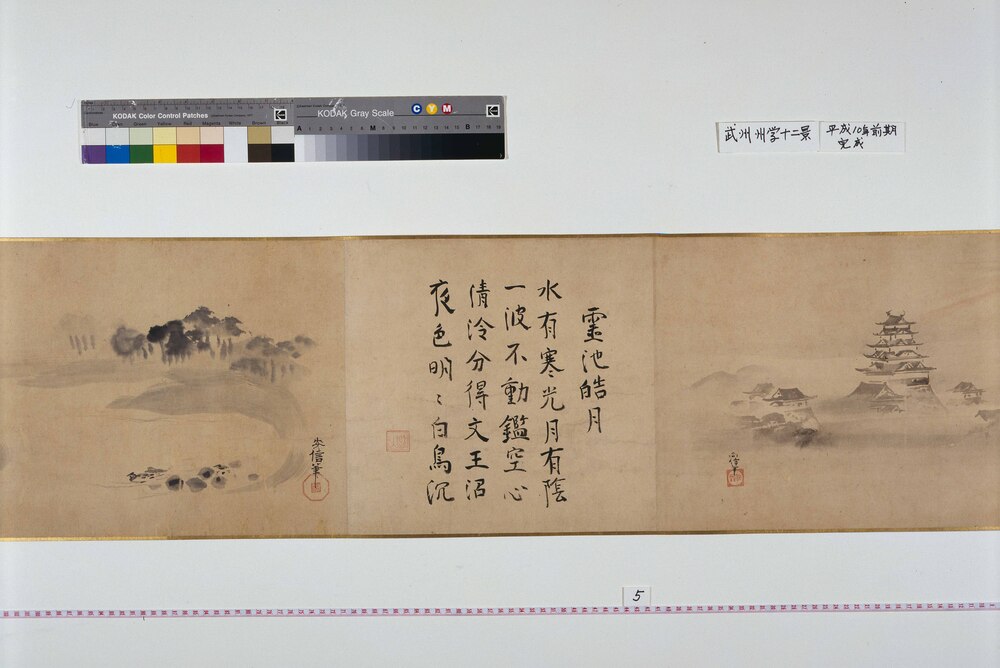 KODAK Color Control Patches
Blue Cyan Green Yellow Red Magenta White Brown Black
KODAK Gray Scale
C Y M
Kodak
A 1 2 3 4 5 6 M 8 9 10 11 12 13 14 15 B 17 18 19
武州州学十二景
平成10年前期
完成
霊池皓月
水有寒光月有陰
一波不動鑑空心
清冷分得文王沼
夜色明〻白鳥沉
5